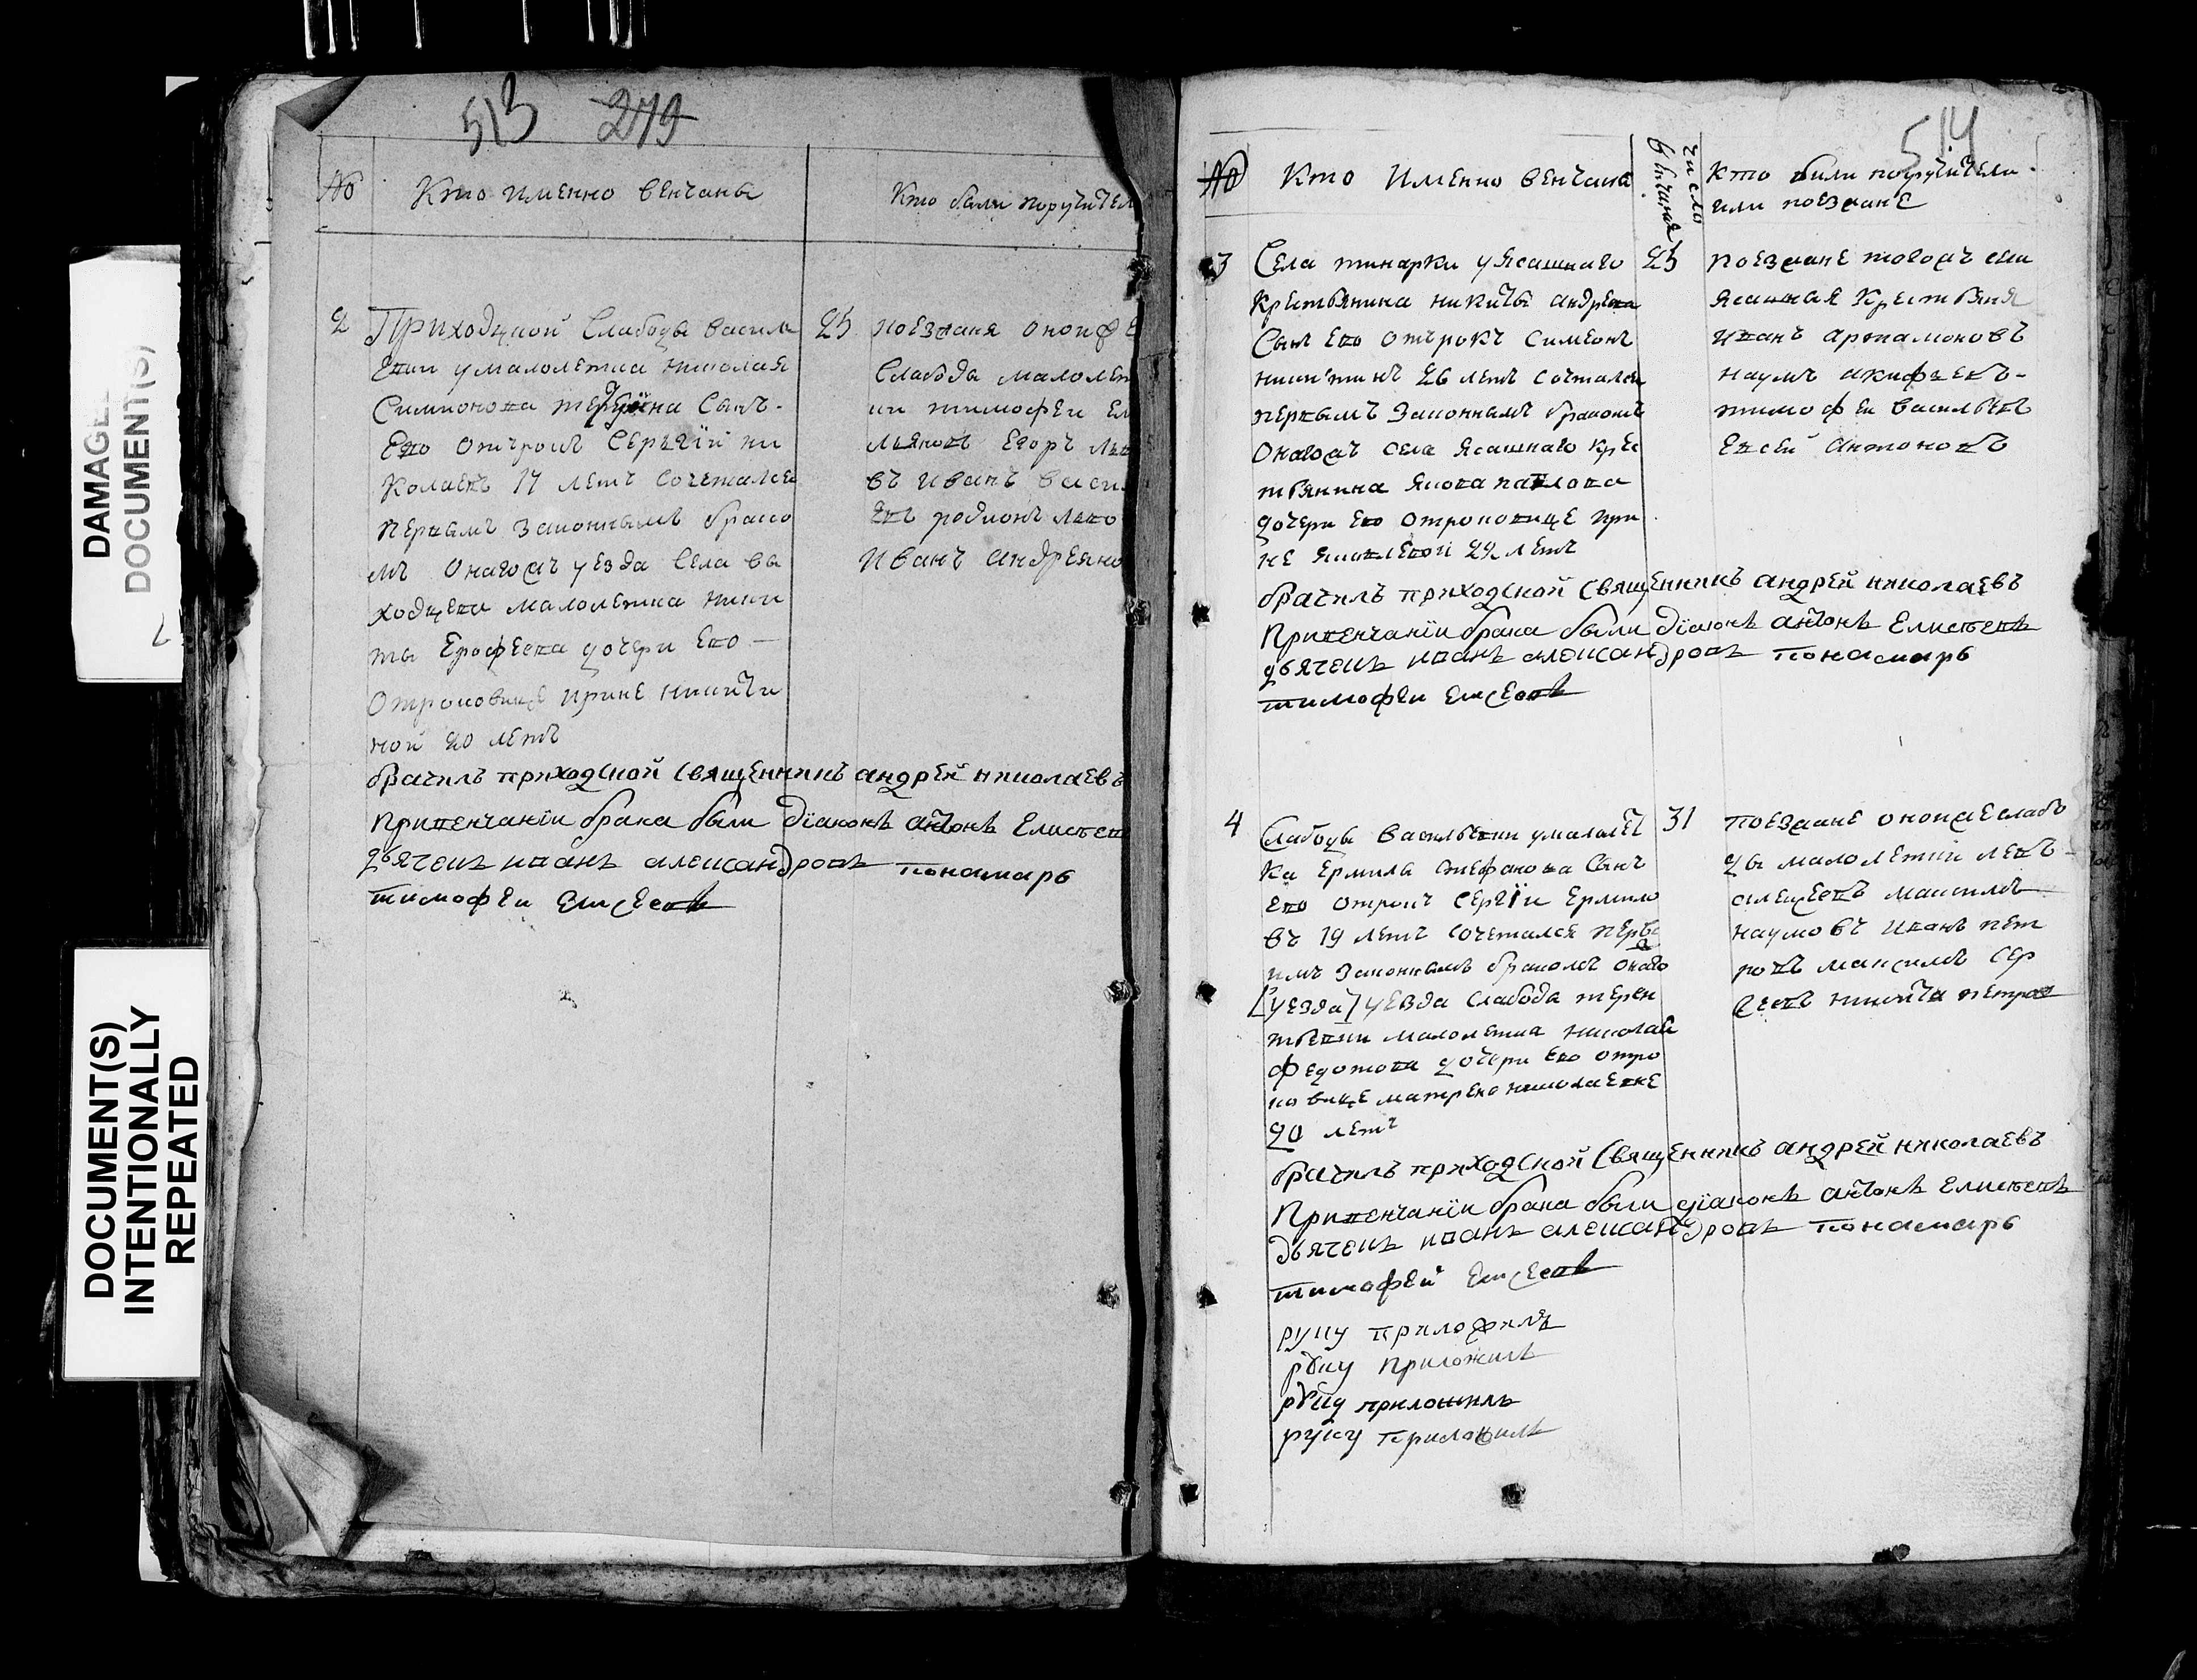 DAMAGED
DOCUMENT(S)
DOCUMENT(S)
INTENTIONALLY
REPEATED
513 279
№ Кто именно венчаны Кто были поручител
2 Приходцкой Слабоды Василь
евки у малолетка Николая
Симионова Сынъ
Ево отърокъ Сергїй ни
колаевъ 17 летъ Сочетался
первымъ законнымъ брако
мъ онагожъ уезда Села вы
малолетка ники
ты Ерофеева дочери Ево
Отроковице ирине никити
ной 20 летъ
25 поезжаня оной же
Слабода малолет
ки тимофеи Ем
льяновъ Егоръ
въ иванъ васил
евъ родионъ
Иванъ андреяно
брачилъ приходской священникъ андрей николаевъ
При венчанїи брака были дїаконъ антонъ Елисеевъ
дьячекъ иванъ александровъ пономарь
тимофеи Елисеевъ
514
№ Кто именно венчана число венчания Кто были поручители
или поезжане
3 Села тинарки у Ясашнаго
Крестьянина никиты андрева
Сынъ Ево отърокъ Симеонъ
никитинъ 26 летъ сочетался
первымъ законнымъ бракомъ
Онагожъ села Ясашнаго крес
тьянина Якова павлова
дочери Ево отроковице
Яковлевой 22 летъ
25 поезжане тогожъ села
Ясашная Крестьяня
иванъ артамоновъ
наумъ акифьевъ
тимофеи васильевъ
Евсей антоновъ
брачилъ приходской священникъ андрей николаевъ
При венчанїи брака были дїаконъ антонъ Елисеевъ
дьячекъ иванъ александровъ пономарь
тимофеи Елисеевъ
4 Слабоды Васильевки у малалет
ка Ермила стефанова Сынъ
ево отрокъ Сергїи Ермило
въ 19 летъ сочетался первы
имъ законнымъ бракомъ онаго
[уезда] уезда Слабода терен
тьевки малолетка николай
Федотова дочери Ево отро
ковице матрено николаевне
20 летъ
31 поезжане оной же слабо
ды малолетки левъ
алексеевъ максимъ
наумовъ иванъ пет
ровъ максимъ сер
геевъ никита петров
брачилъ приходской священникъ андрей николаевъ
При венчанїи брака были дїаконъ антонъ Елисеевъ
дьячекъ иванъ александровъ пономарь
тимофей Елисеевъ
руку приложилъ
руку приложилъ
руку приложилъ
руку приложилъ